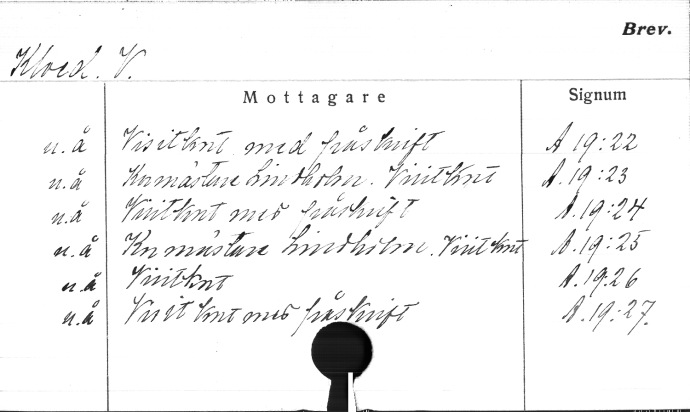 Brev.
Kloed. V.
Mottagare Signum
u.å Visitkort med påskrift A 19:22
u.å Kammästare Lindholm. Visitkort A. 19:23
u.å Visitkort med påskrift A. 19:24
u.å Kammästare Lindholm. Visitkort A. 19:25
u.å Visitkort A. 19:26
u.å Visitkort med påskrift A. 19:27.